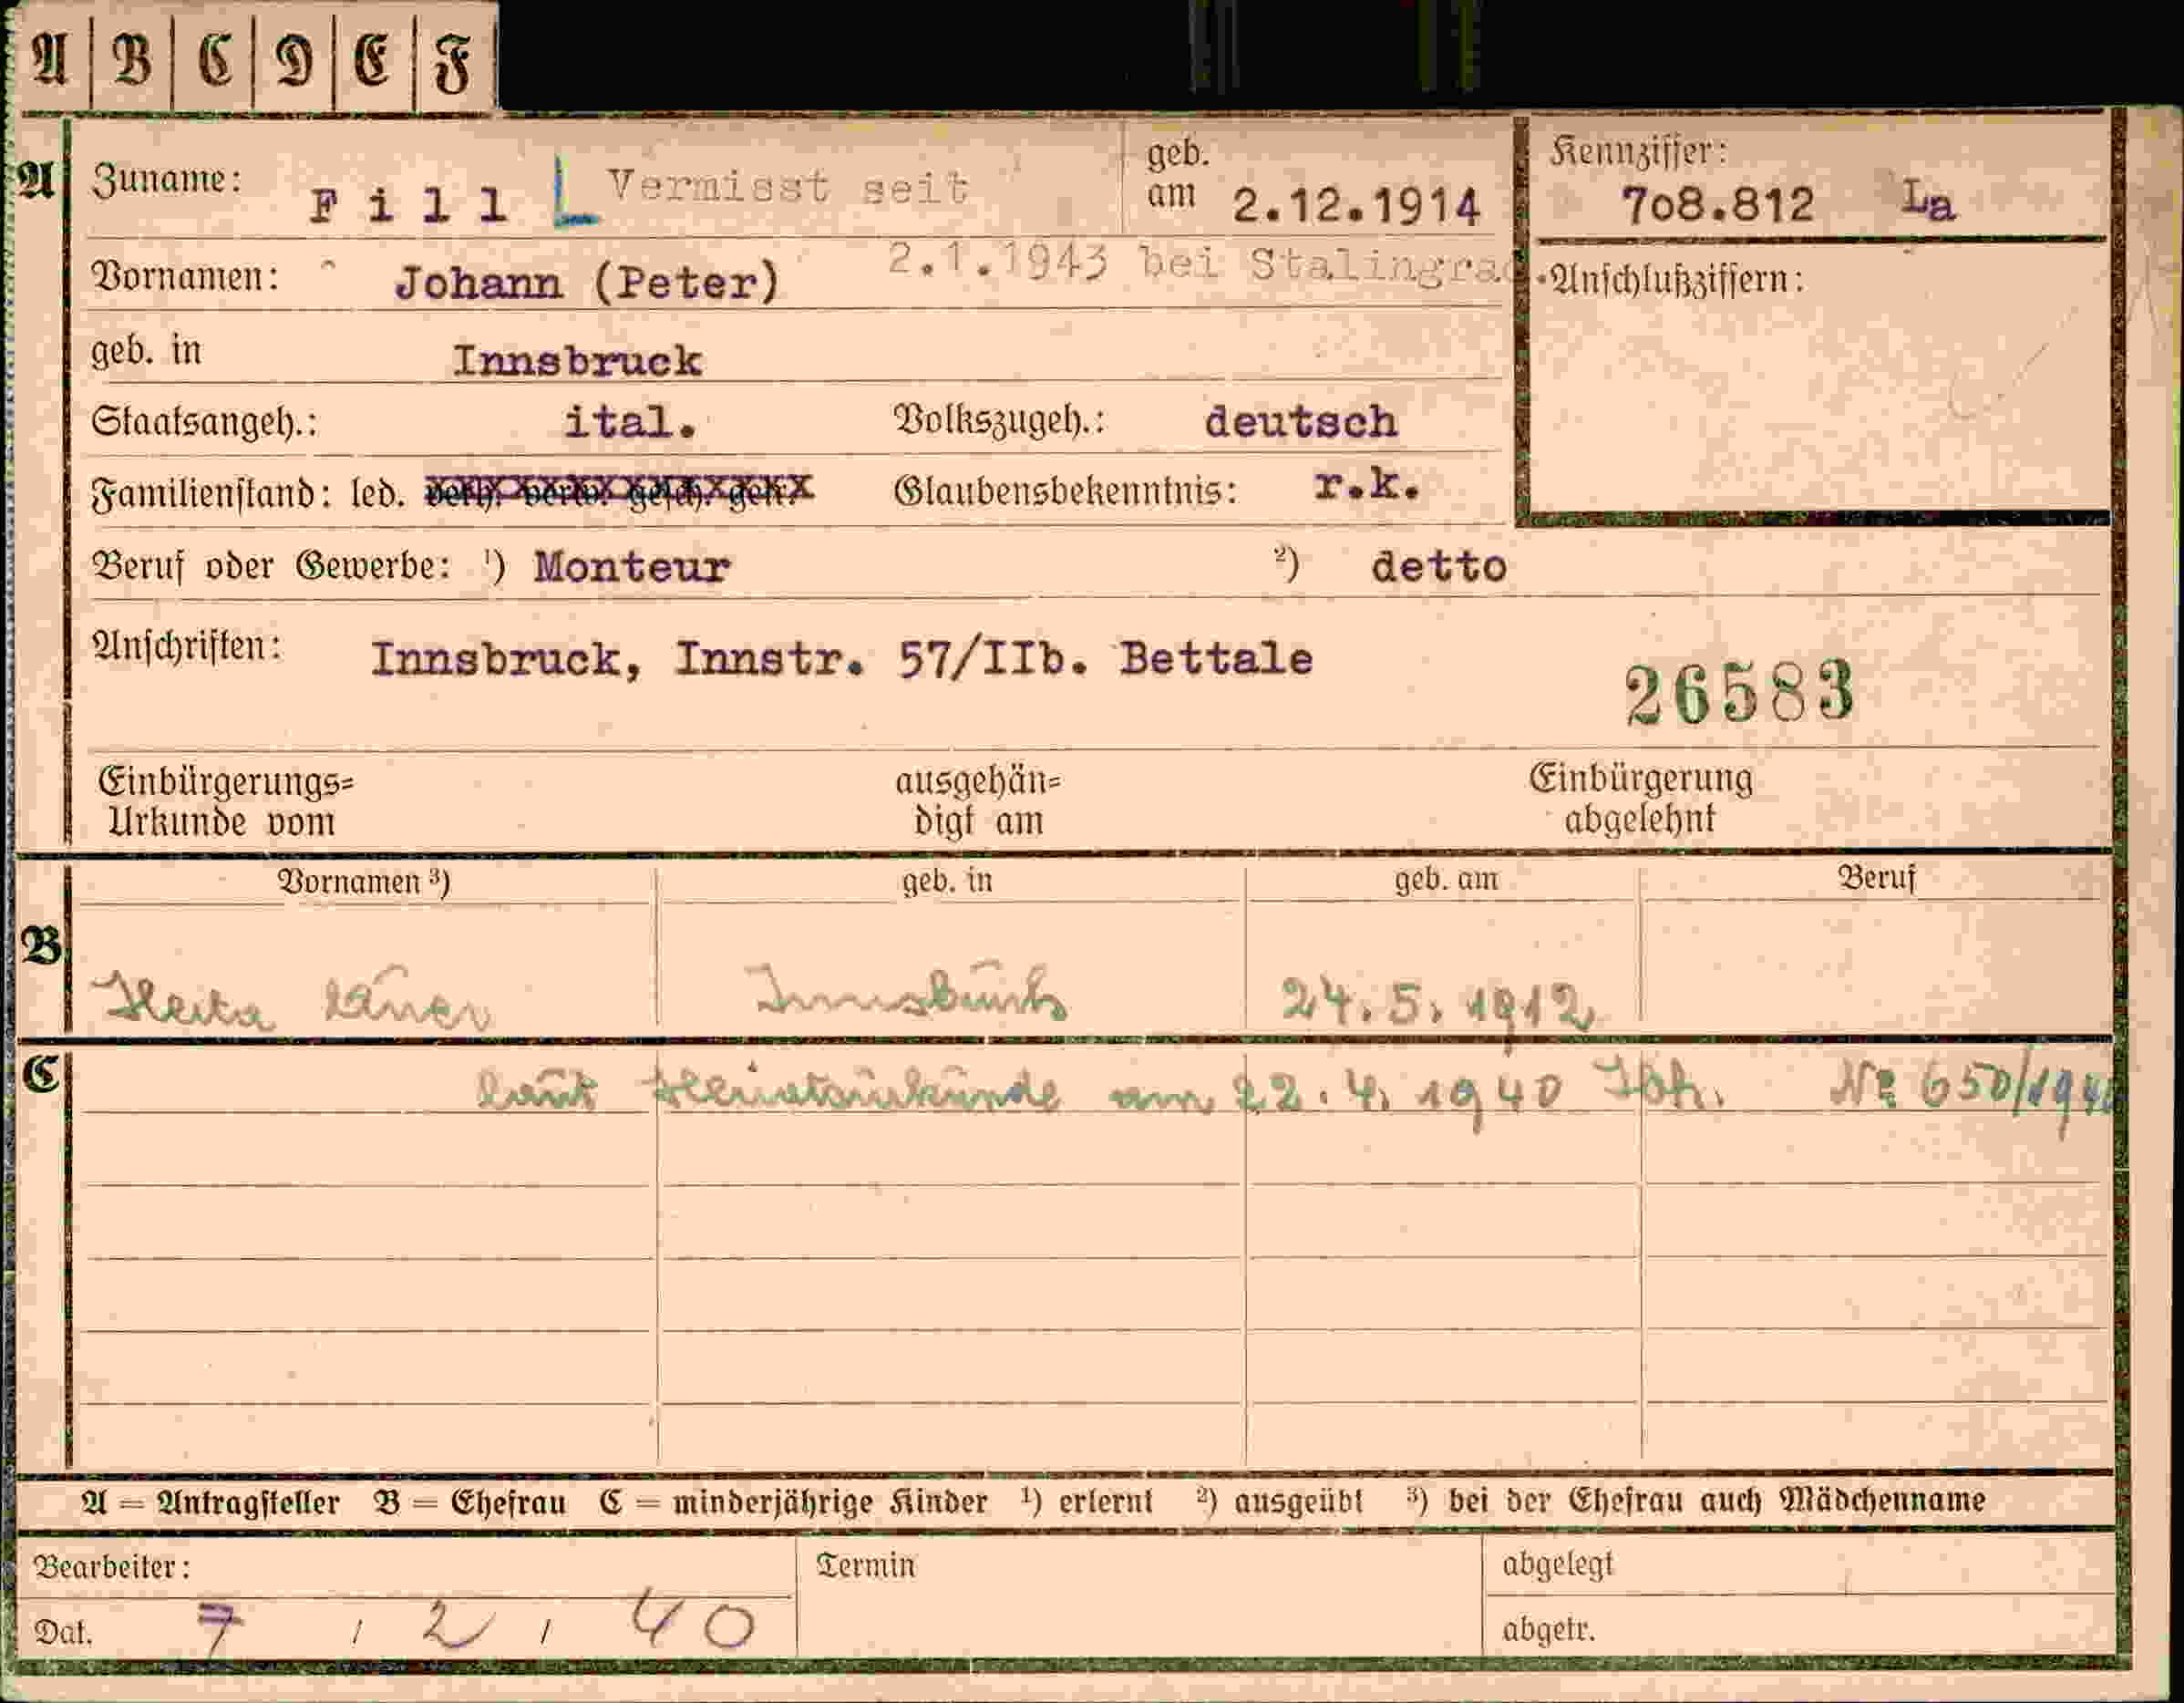 A B C D E F
A Zuname: Fill L Vermisst seit geb. am 2.12.1914 Kennziffer: 7o8.812 La
Vornamen: Johann (Peter) 2.1.1943 bei Stalingrad Anschlußziffern:
geb. in Innsbruck
Staatsangeh.: ital. Volkszugeh.: deutsch
Familienstand: led. verh. verw. gesch. getr. Glaubensbekenntnis: r.k.
Beruf oder Gewerbe: ¹) Monteur ²) detto
Anschriften: Innsbruck, Innstr. 57/IIb. Bettale
26583
Einbürgerungs= ausgehän= Einbürgerung
Urkunde vom digt am abgelehnt
Vornamen ³) geb. in geb. am Beruf
B Herta Innsbruck 24.5.1912
C laut Heiratsurkunde am 22.4.1940 Ibk. № 650/1940
A = Antragsteller B = Ehefrau C = minderjährige Kinder ¹) erlernt ²) ausgeübt ³) bei der Ehefrau auch Mädchenname
Bearbeiter: Termin abgelegt
Dat. 7 / 2 / 40 abgetr.